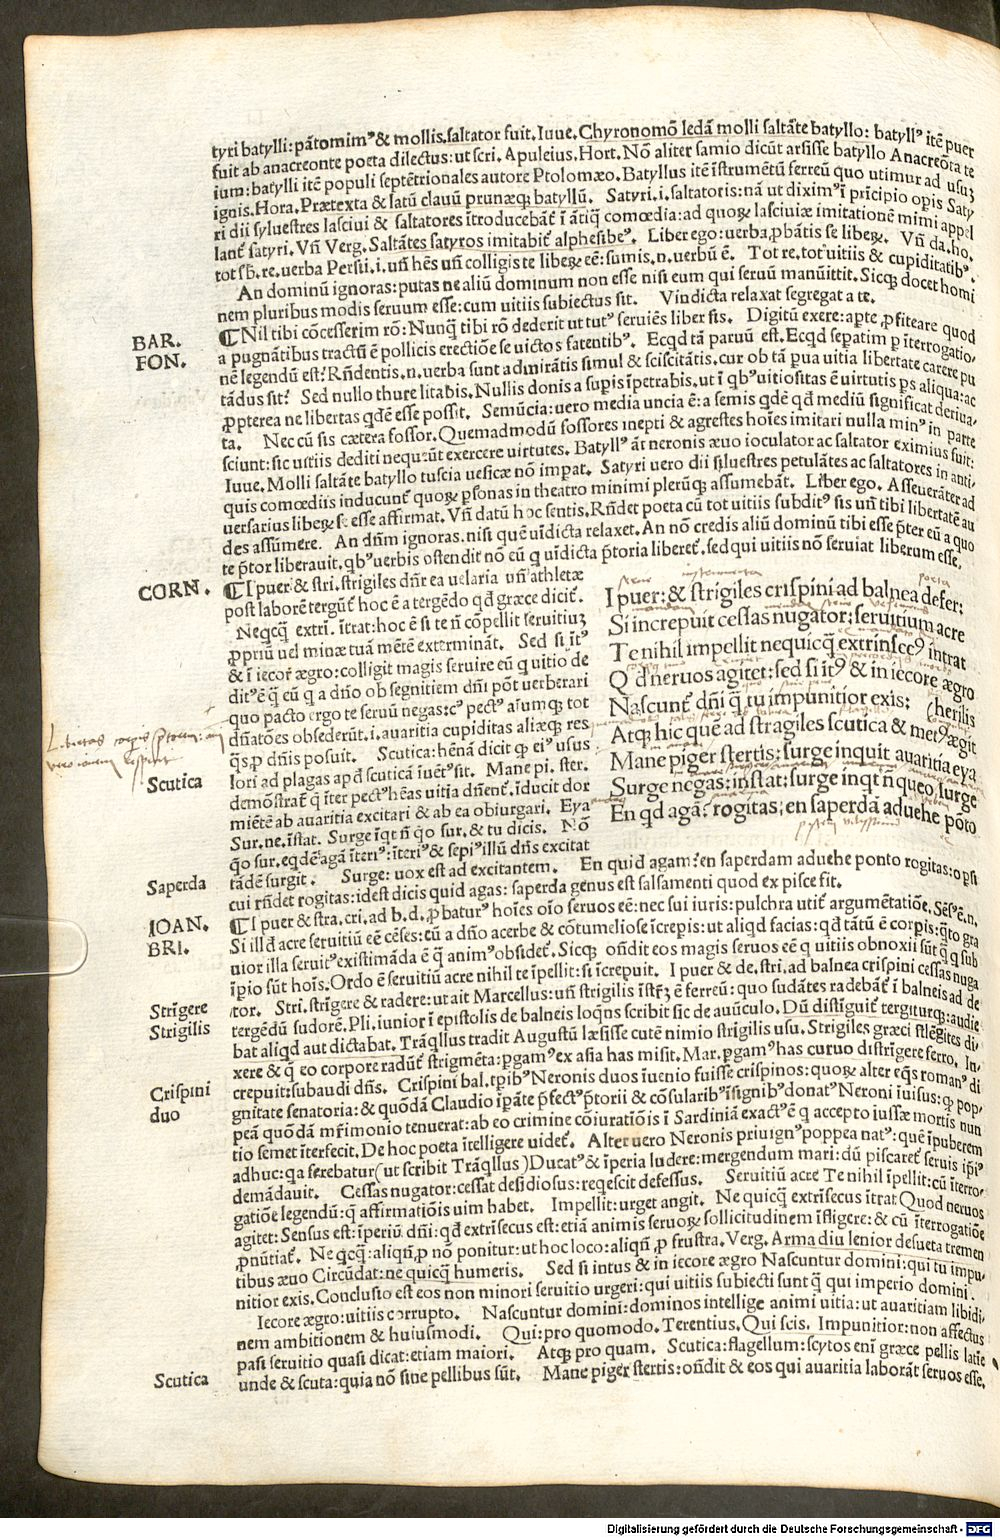 tyri batylli: pãtomimꝰ & mollis.saltator fuit. Iuue. Chyronomõ ledã molli saltãte batyllo: batyllꝰ itẽ puer
fuit ab anacreonte poeta dilectus: ut scri. Apuleius. Hort. Nõ aliter samio dicũt arsisse batyllo Anacreõta te
ium: batylli itẽ populi septẽtrionales autore Ptolomæo. Batyllus itẽ ĩstrumẽtũ ferreũ quo utimur ad usuꝫ
ignis. Hora. Prætexta & latũ clauũ prunæqꝫ batyllũ. Satyri.i.saltatoris: nã ut diximꝰ ĩ prĩcipio opis Saty
ri dii syluestres lasciui & saltatores ĩtroducebãt̃ ĩ ãtiq̃ comœdia: ad quoꝝ lasciuiæ imitationẽ mimi appel
lant̃ satyri. Vñ Verg. Saltãtes satyros imitabit̃ alphesibeꝰ. Liber ego: uerba, ꝓbãtis se libeꝝ. Vñ da. ho.
tot sb̃. re. uerba Persii.i. uñ hẽs uñ colligis te libeꝝ eẽ: sumis.n. uerbũ ẽ. Tot re. tot uitiis & cupiditatibꝰ.
An dominũ ignoras: putas ne aliũ dominum non esse nisi eum qui seruũ manũittit. Sicqꝫ docet homi
nem pluribus modis seruum esse: cum uitiis subiectus sit. Vindicta relaxat segregat a te.
BAR. ¶Nil tibi cõcesserim rõ: Nunq̃ tibi rõ dederit ut tutꝰ seruiẽs liber sis. Digitũ exere: apte, ꝓfiteare quod
FON. a pugnãtibus tractũ ẽ pollicis erectiõe se victos fatentibꝰ. Ecqd tã paruũ est. Ecqd sepatim p ĩterrogatio/
nẽ legendũ est? Rñdentis.n.uerba sunt admirãtis simul & sciscitãtis. cur ob tã pua uitia libertate carere pu
tãdus sit? Sed nullo thure litabis. Nullis donis a supis ĩpetrabis. ut ĩ qbꝰ uitiositas ẽ uirtutis ps aliqua: ac
ꝓpterea ne libertas qdẽ esse possit. Semũcia: uero media uncia ẽ: a semis qdẽ qđ mediũ significat deriua/
ta. Nec cũ sis cætera fossor. Quemadmodũ fossores inepti & agrestes hoĩes imitari nulla minꝰ in parte
sciunt: sic uitiis dediti nequeũt exercere uirtutes. Batyllꝰ ãt neronis æuo ioculator ac saltator eximius fuit:
Iuue. Molli saltãte batyllo tuscia uesicæ nõ impat. Satyri uero dii siluestres petulãtes ac saltatores in anti/
quis comœdiis inducunt̃ quoꝝ psonas in theatro minimi plerũqꝫ assumebãt. Liber ego. Asseuerãter ad
uersarius libeꝝ se esse affirmat. Vñ datũ hoc sentis. Rñdet poeta cũ tot uitiis subditꝰ sis uñ tibi libertatẽ au
des assũmere. An dñm ignoras. nisi quẽ uĩdicta relaxet. An nõ credis aliũ dominũ tibi esse p̃ter eũ a quo
te p̃tor liberauit. qbꝰ uerbis ostendit nõ eũ q uĩdicta p̃toria liberet̃. sed qui uitiis nõ seruiat liberum esse.
CORN. ¶I puer: & stri. strigiles dñr ea uelaria uñ athletæ
post laborẽ tergũt̃ hoc ẽ a tergẽdo qđ græce dicit̃.
Neqcq̃ extrĩ. ĩtrat: hoc ẽ si te ñ cõpellit seruitiuꝫ
ꝓpriũ uel minæ tuã mẽtẽ exterminãt. Sed si ĩtꝰ
& ĩ iecor̃ ægro: colligit magis seruire eũ q uitio de
ditꝰ ẽ q̃ eũ q a dño ob segnitiem dñi põt uerberari
quo pacto ergo te seruũ negas: cꝰ pectꝰ aĩumqꝫ tot
dñatões obsederũt.i.auaritia cupiditas aliæqꝫ res
q̃s, p dñis posuit. Scutica: hẽnã dicit qꝫ eiꝰ usus
Scutica lori ad plagas apđ scuticã ĩuẽtꝰ sit. Mane pi. ster.
demõstrat̃ q̃ ĩter pectꝰ hẽas uitia dñent̃. ĩducit dor
miẽtẽ ab auaritia excitari & ab ea obiurgari. Eya
Sur. ne. ĩstat. Surge ĩqt ñ q̃o sur. & tu dicis. Nõ
q̃o sur. eqdẽ agã ĩteriꝰ: ĩteriꝰ & sepiꝰ illũ dñs excitat
Saperda tãdẽ surgit. Surge: uox est ad excitantem. En quid agam? en saperdam aduehe ponto rogitas: o psi
cui rñdet rogitas: idest dicis quid agas: saperda genus est salsamenti quod ex pisce fit.
I puer: & strigiles crispini ad balnea defer:
Si increpuit cessas nugator: seruitium acre
Te nihil impellit nequicq̃ extrinsecꝰ intrat
Qđ neruos agitet: sed si ĩtꝰ & in iecore ægro
Nascunt̃ dñi q̃ tu impunitior exis: (herilis
Atqꝫ hic quẽ ad stragiles scutica & metꝰ ægit
Mane piger stertis: surge inquit auaritia eya
Surge negas: instat: surge inqt ñ queo, surge
En qđ agã? rogitas: en saperdã aduehe põto
IOAN. ¶I puer & stra. cri. ad b. d. ꝓbaturꝰ hoĩes oĩo seruos eẽ: nec sui iuris: pulchra utit̃ argumẽtatiõe. Sẽsꝰ ẽ.n.
BRI. Si illđ acre seruitiũ eẽ cẽses: cũ a dño acerbe & cõtumeliose ĩcrepis: ut aliqd facias: qđ tãtũ ẽ corpis: q̃to gra
uior illa seruitꝰ existimãda ẽ q̃ animꝰ obsidet̃. Sicqꝫ oñdit eos magis seruos eẽ q uitiis obnoxii sũt q̃ q sub
ĩpio sũt hoĩs. Ordo ẽ seruitiũ acre nihil te ĩpellit: si ĩcrepuit. I puer & de. stri. ad balnea crispini cessas nuga
Strĩgere tor. Stri. strĩgere & radere: ut ait Marcellus: uñ strigilis ĩstr̃ꝫ ẽ ferreũ: quo sudãtes radebãt̃ ĩ balneis ad de
Strigilis tergẽdũ sudorẽ. Pli. iunior ĩ epistolis de balneis loqñs scribit sic de auũculo. Dũ distiguit̃ tergiturqꝫ: audie
bat aliqđ aut dictabat. Trãqllus tradit Augustũ læsisse cutẽ nimio strigilis usu. Strigiles græci stlẽgites di/
xere & q̃ eo corpore radũt̃ strigmẽta: pgamꝰ ex asia has misit. Mar. pgamꝰ has curuo distrĩgere ferro. In/
Crispini crepuit: subaudi dñs. Crispini bal. tpibꝰ Neronis duos ĩuenio fuisse crispinos: quoꝝ alter eq̃s romanꝰ di
duo gnitate senatoria: & quõdã Claudio ĩpãte p̃fectꝰ p̃torii & cõsularibꝰ ĩsignibꝰ donatꝰ Neroni ĩuisus: qꝫ pop/
peã quõdã mr̃imonio tenuerat: ab eo crimine cõiuratiõis ĩ Sardiniã exactꝰ ẽ q accepto iussæ mortis nun
tio semet ĩterfecit. De hoc poeta ĩtelligere uidet̃. Alter uero Neronis priuignꝰ poppea natꝰ: quẽ ĩpuberem
adhuc: qa ferebatur (ut scribit Trãqllus) Ducatꝰ & ĩperia ludere: mergendum mari: dũ piscaret̃ seruis ip̃iꝰ
demãdauit. Cessas nugator: cessat desidiosus: reqescit defessus. Seruitiũ acre Te nihil ĩpellit: cũ ĩterro/
gatiõe legendũ: q̃ affirmatiõis uim habet. Impellit: urget angit. Ne quicq̃ extrĩsecus ĩtrat Quod neruos
agitet: Sensus est: ĩperiũ dñi: qđ extrĩsecus est: etiã animis seruoꝝ sollicitudinem ĩfligere: & cũ ĩterrogatiõe
ꝓnũtiat̃. Ne qcq̃: aliqñ, p nõ ponitur: ut hoc loco: aliqñ, p frustra. Verg. Arma diu senior desueta tremen
tibus æuo Circũdat: ne quicq̃ humeris. Sed si intus & in iecore ægro Nascuntur domini: qui tu impu/
nitior exis. Conclusio est eos non minori seruitio urgeri: qui uitiis subiecti sunt q̃ qui imperio domini.
Iecore ægro: uitiis corrupto. Nascuntur domini: dominos intellige animi uitia: ut auaritiam libidi,
nem ambitionem & huiusmodi. Qui: pro quomodo. Terentius. Qui scis. Impunitior: non affectus
pasi seruitio quasi dicat: etiam maiori. Atqꝫ pro quam. Scutica: flagellum: scytos enĩ græce pellis latie
Scutica unde & scuta: quia nõ sine pellibus sũt. Mane piger stertis: oñdit & eos qui auaritia laborãt seruos esse.
Digitalisierung gefördert durch die Deutsche Forschungsgemeinschaft - DFG